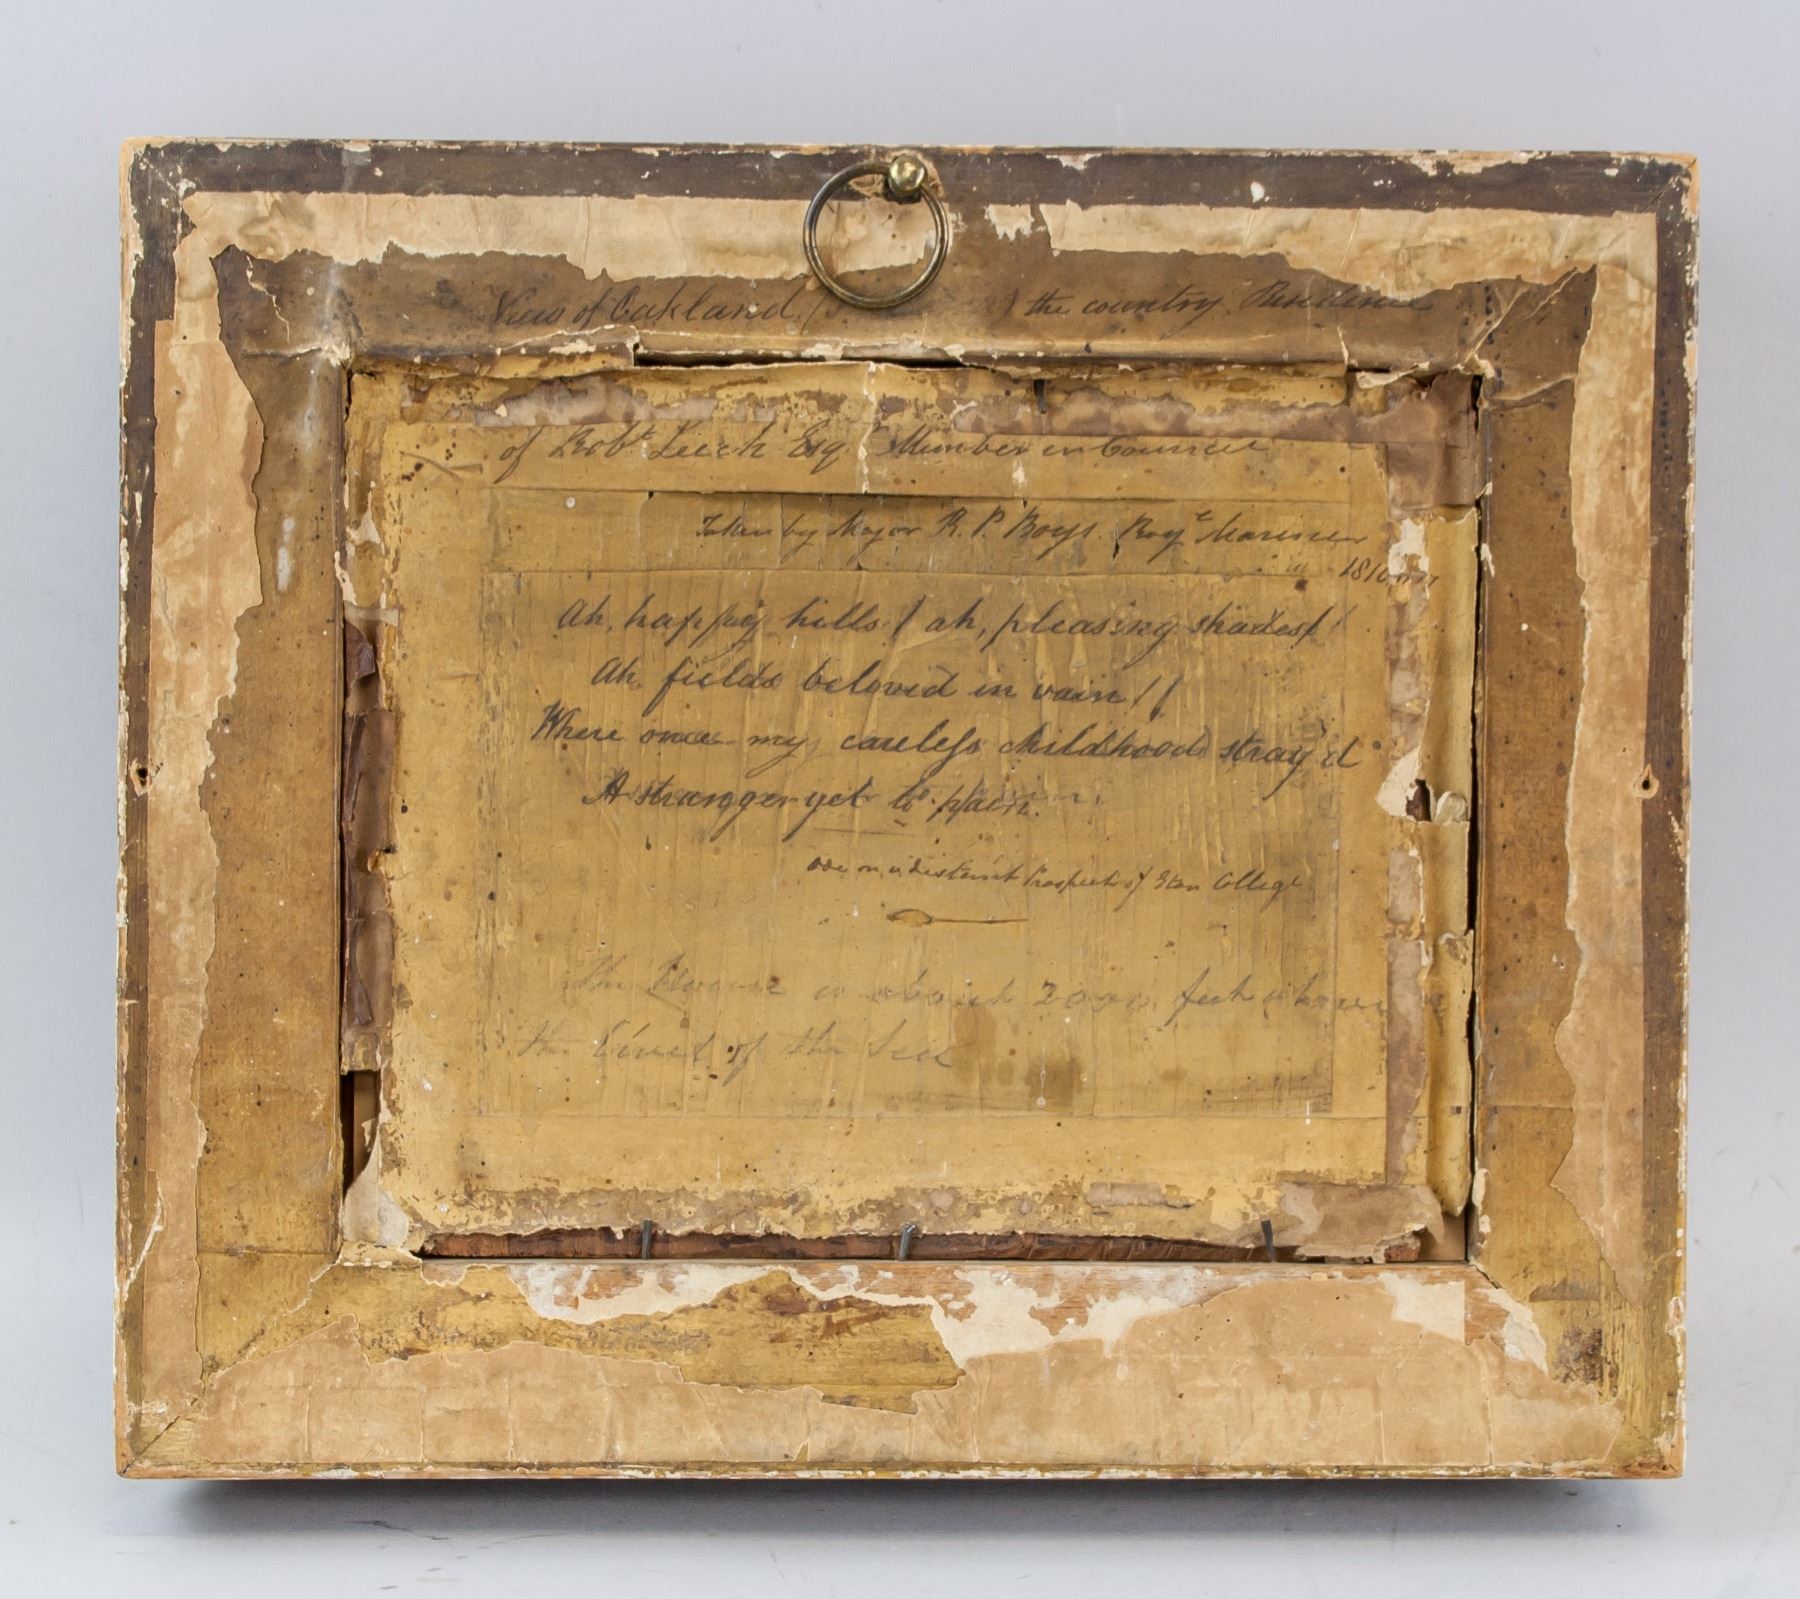 View of Oakland ( ) the country Residence
of Robt Leech Esqr Member in Council
Taken by Major R. P. Boys. Royl Marines
in 1816
Ah, happy hills! ah, pleasing shades!
Ah, fields beloved in vain!!
Where once my careless childhood stray'd
A stranger yet to pain.
Ode on a distant Prospect of Eton College
The House is about 2000 feet above
the Level of the Sea